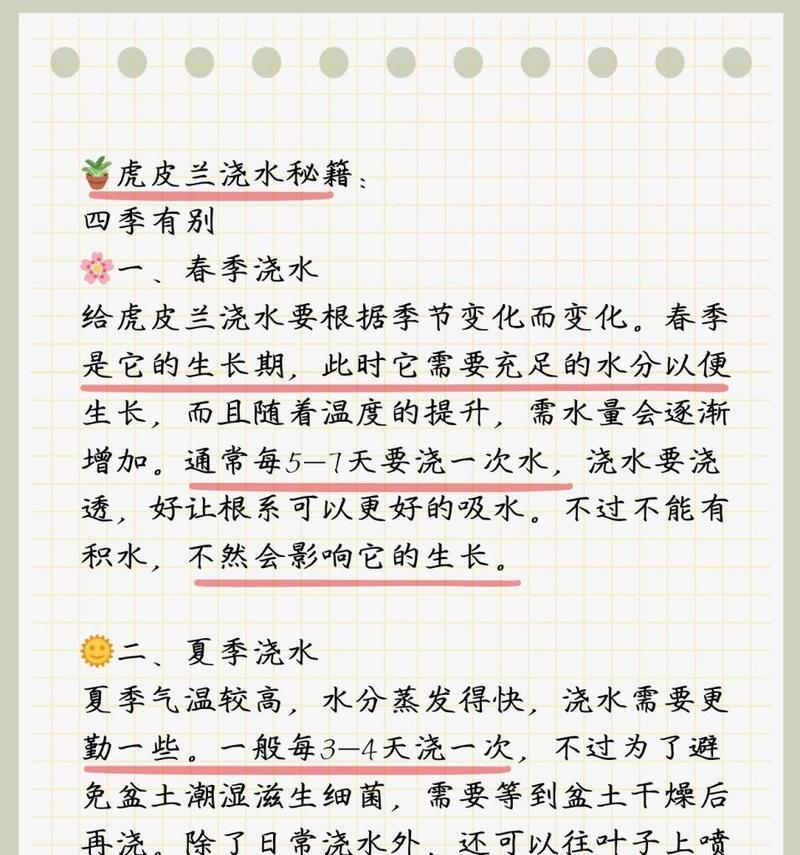 🪴虎皮兰浇水秘籍：
四季有别
🌸一、春季浇水
给虎皮兰浇水要根据季节变化而变化。春季
是它的生长期，此时它需要充足的水分以便
生长，而且随着温度的提升，需水量会逐渐
增加。通常每5-7天要浇一次水，浇水要浇
透，好让根系可以更好的吸水。不过不能有
积水，不然会影响它的生长。
🌞二、夏季浇水
夏季气温较高，水分蒸发得快，浇水需要更
勤一些。一般每3-4天浇一次，不过为了避
免盆土潮湿滋生细菌，需要等到盆土干燥后
再浇。除了日常浇水外，还可以往叶子上喷